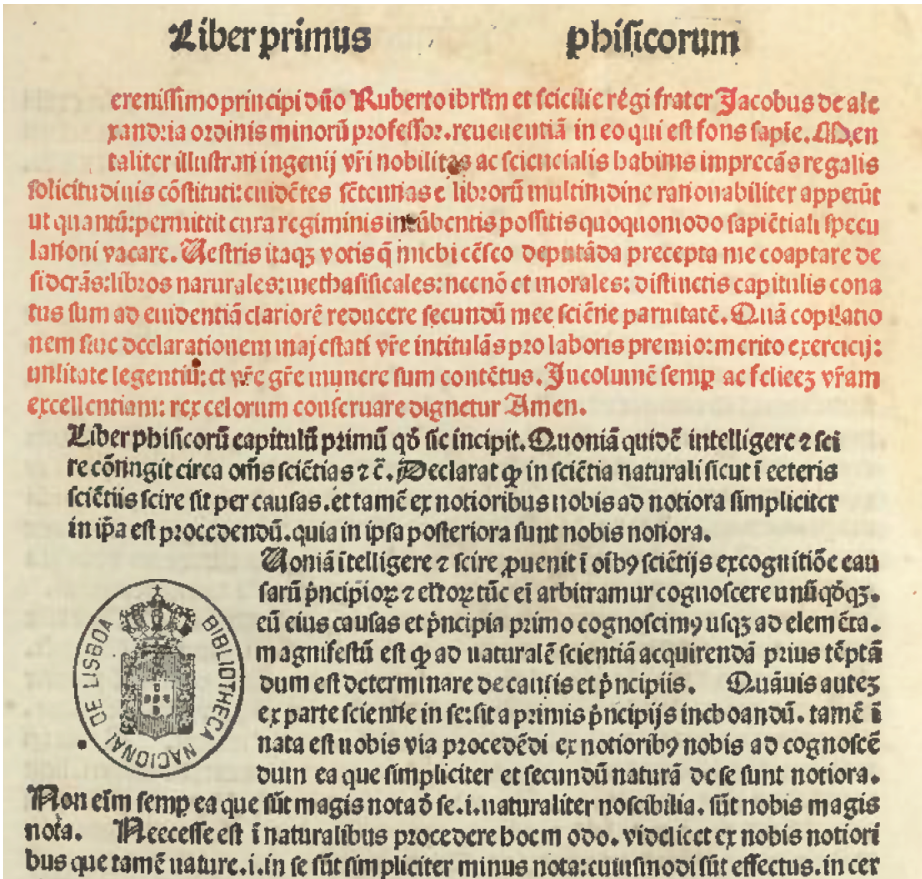 Liber primus phisicorum
erenissimo principi dño Ruberto ibrłm et scicilie regi frater Jacobus de ale
xandria ordinis minorū professor. reuerentiā in eo qui est fons sapīe. Men
taliter illustrati ingenij vr̄i nobilitas ac sciencialis habitus imprecās regalis
solicitudinis cōstituti: euidētes sētentias e librorū multitudine rationabiliter appetūt
ut quantū: permittit cura regiminis incūbentis possitis quoquomodo sapiētiali specu
lationi vacare. Uestris itaqꝫ votis q̄ michi cēsco deputāda precepta me coaptare de
siderās: libros naturales: methafisicales: necnō et morales: distinctis capitulis cona
tus sum ad euidentiā clariorē reducere secundū mee sciētie paruitatē. Quā copilatio
nem siue declarationem maiestati vr̄e intitulās pro laboris premio: merito exercicij:
utilitate legentiū: et vr̄e gr̄e munere sum contētus. Incolumē semꝑ ac feliceꝫ vr̄am
excellentiam: rex celorum conseruare dignetur Amen.
Liber phisicorū capitulū primū qđ sic incipit. Quoniā quidē intelligere ⁊ sci
re cōtingit circa oēs sciētias ⁊ c̄. Declarat ꝙ in sciētia naturali sicut ī ceteris
sciētiis scire sit per causas. et tamē ex notioribus nobis ad notiora simpliciter
in ip̄a est procedendū. quia in ipsa posteriora sunt nobis notiora.
Uoniā ītelligere ⁊ scire ꝓuenit ī oībꝯ sciētijs ex cognitiōe cau
sarū p̄ncipioꝝ ⁊ elt̄oꝝ tūc ei arbitramur cognoscere unūqđqꝫ.
cū eius causas et p̄ncipia primo cognoscimꝯ usqꝫ ad elemēta.
magnifestū est ꝙ ad naturalē scientiā acquirendā prius tēptā
dum est determinare de causis et p̄ncipiis. Quāuis auteꝫ
ex parte scientie in se: sit a primis p̄ncipijs inchoandū. tamē ī
nata est nobis via procedēdi ex notioribꝯ nobis ad cognoscē
dum ea que simpliciter et secundū naturā de se sunt notiora.
Non eīm semꝑ ea que sūt magis nota đ se. i. naturaliter noscibilia. sūt nobis magis
nota. Neecesse est ī naturalibus procedere hoc m odo. videlicet ex nobis notiori
bus que tamē nature. i. in se sūt simpliciter minus nota: cuiusmodi sūt effectus. in cer
BIBLIOTHECA NACIONAL DE LISBOA